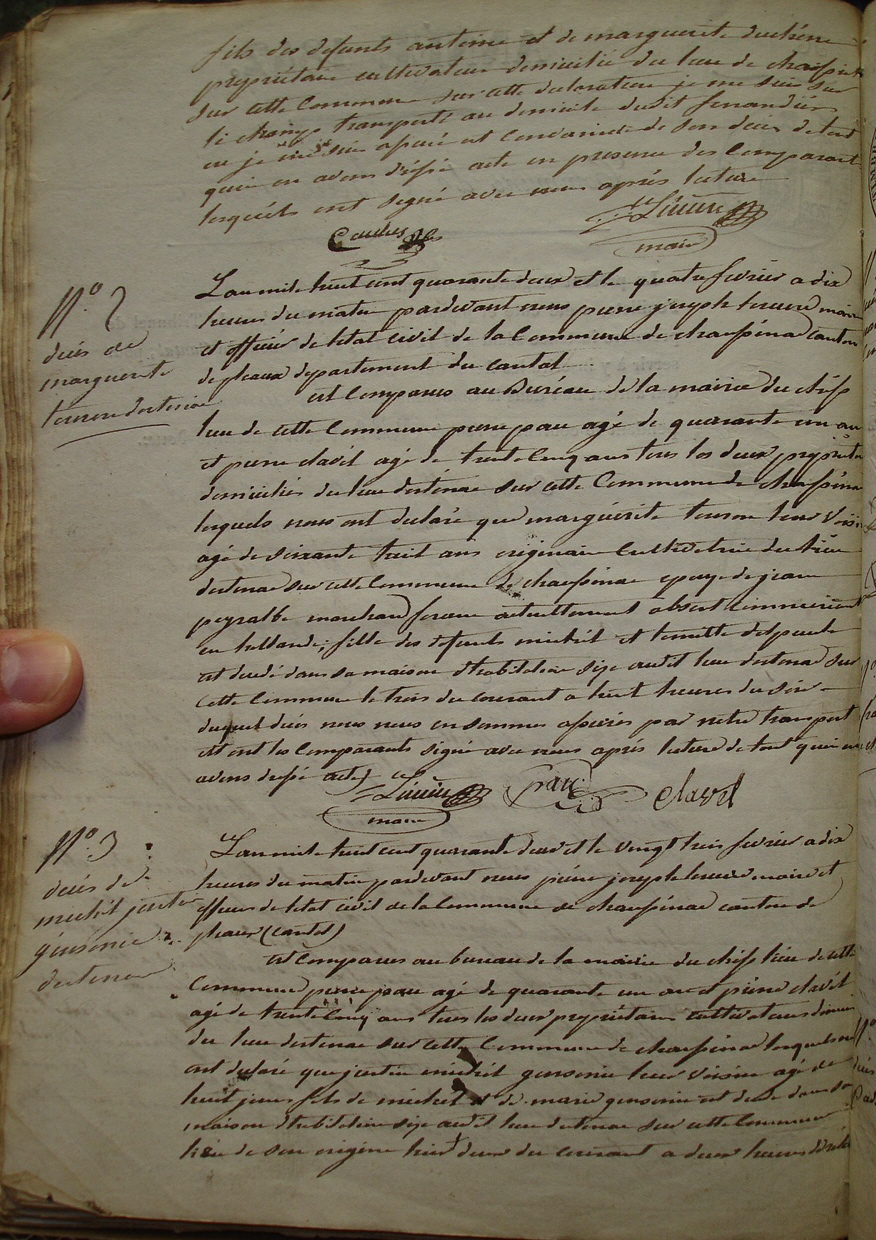 fils des defunts antoine et de marguerite duchéne
propriétaire cultivateur domicilié du lieu de
sur cette Commune sur cette declaration je me suis sur
le champ transporté au domicile dudit
ou je me suis assuré et Convaincu de son deces de tout
quoi en avons dressé acte en presence des Comparants
lesquels ont signé avec nous après lecture
maire
N.º 2
deces de
marguerite
touron destenac
L'an mil huit cent quarante deux et le quatre fevrier a dix
heures du matin pardevant nous pierre joseph maire
et officier de létat civil de la Commune de chaussenac canton
de pleaux departement du cantal
est Comparus au Bureau de la mairie du chef
lieu de cette Commune pierre pau agé de quarante un an
et pierre clavel agé de trente Cinq ans tous les deux propriétaires
domiciliés du lieu destenac sur cette Commune de chaussenac
lesquels nous ont declaré que marguerite touron leur voisine
agé de soixante huit ans originaire Cultivatrice du lieu
destenac sur cette Commune de chaussenac epouse de jean
peyralbe marchand forain actuellement absent
en hollande, fille des defunts michél et
est decedé dans sa maison dhabitation sise audit lieu destenac sur
Cette Commune le trois du courant a huit heures du soir
duquel déces nous nous en sommes assurés par notre transport
et ont les Comparants signé avec nous après lecture de tout quoi en
avons dressé acte
maire pau clavel
N.º 3
deces de
michél justin
gensonie
destenac
L'an mil huit cent quarante deux et le vingt trois fevrier a dix
heures du matin pardevant nous pierre joseph maire et
officier de létat civil de la Commune de chaussenac canton de
pleaux (cantal)
est Comparus au bureau de la mairie du chef lieu de cette
Commune pierre pau agé de quarante un an et pierre clavél
agé de trente Cinq ans tous les deux propriétaires cultivateurs
du lieu destenac sur cette Commune de chaussenac lesquels nous
ont declaré que justin michél gensonie leur voisin agé de
huit jours fils de michél et de marie gensonie est decedé dans sa
maison dhabitation sise audit lieu destenac sur cette Commune
lieu de son origine hier deux du courant a deux heures